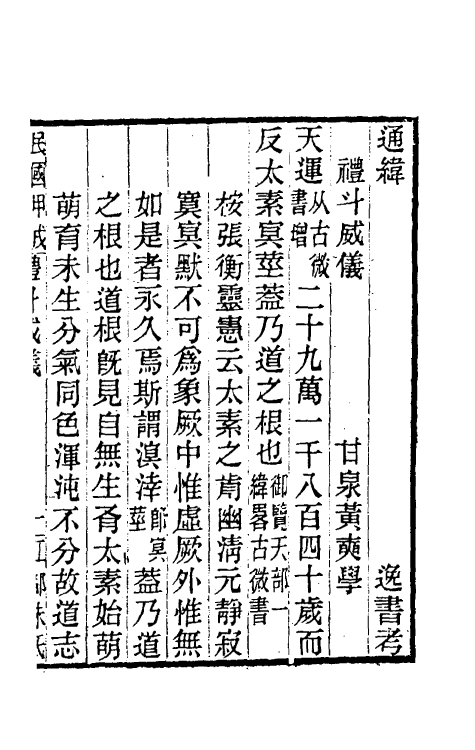 通緯　逸書考
禮斗威儀　甘泉黃奭學
天運從古微書增二十九萬一千八百四十歲而
反太素冥莖葢乃道之根也御覽天部一緯畧古微書
桉張衡靈憲云太素之前幽淸元靜寂
寞冥默不可爲象厥中惟虛厥外惟無
如是者永久焉斯謂溟涬卽冥莖葢乃道
之根也道根旣見自無生有太素始萌
萌育未生分氣同色渾沌不分故道志
民國甲戌禮斗威儀　一江都朱氏